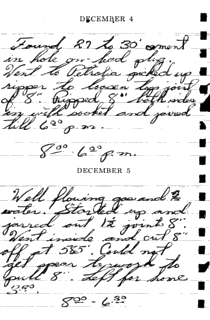 DECEMBER 4
Found 27 to 30' cement
in hole
Went to Petrolia picked up
ripper to loosen top joint
of 8". Ripped 8"
in well socket and jarred
till 6:30 p.m.
8:00 - 6:30 p.m.
DECEMBER 5
Well flowing gas and
water. Started up and
jarred out 1 joint 8".
Went inside and cut 8"
off at 565'. Could not
get spear to work to
pull 8". Left for home
8:00 - 6:30